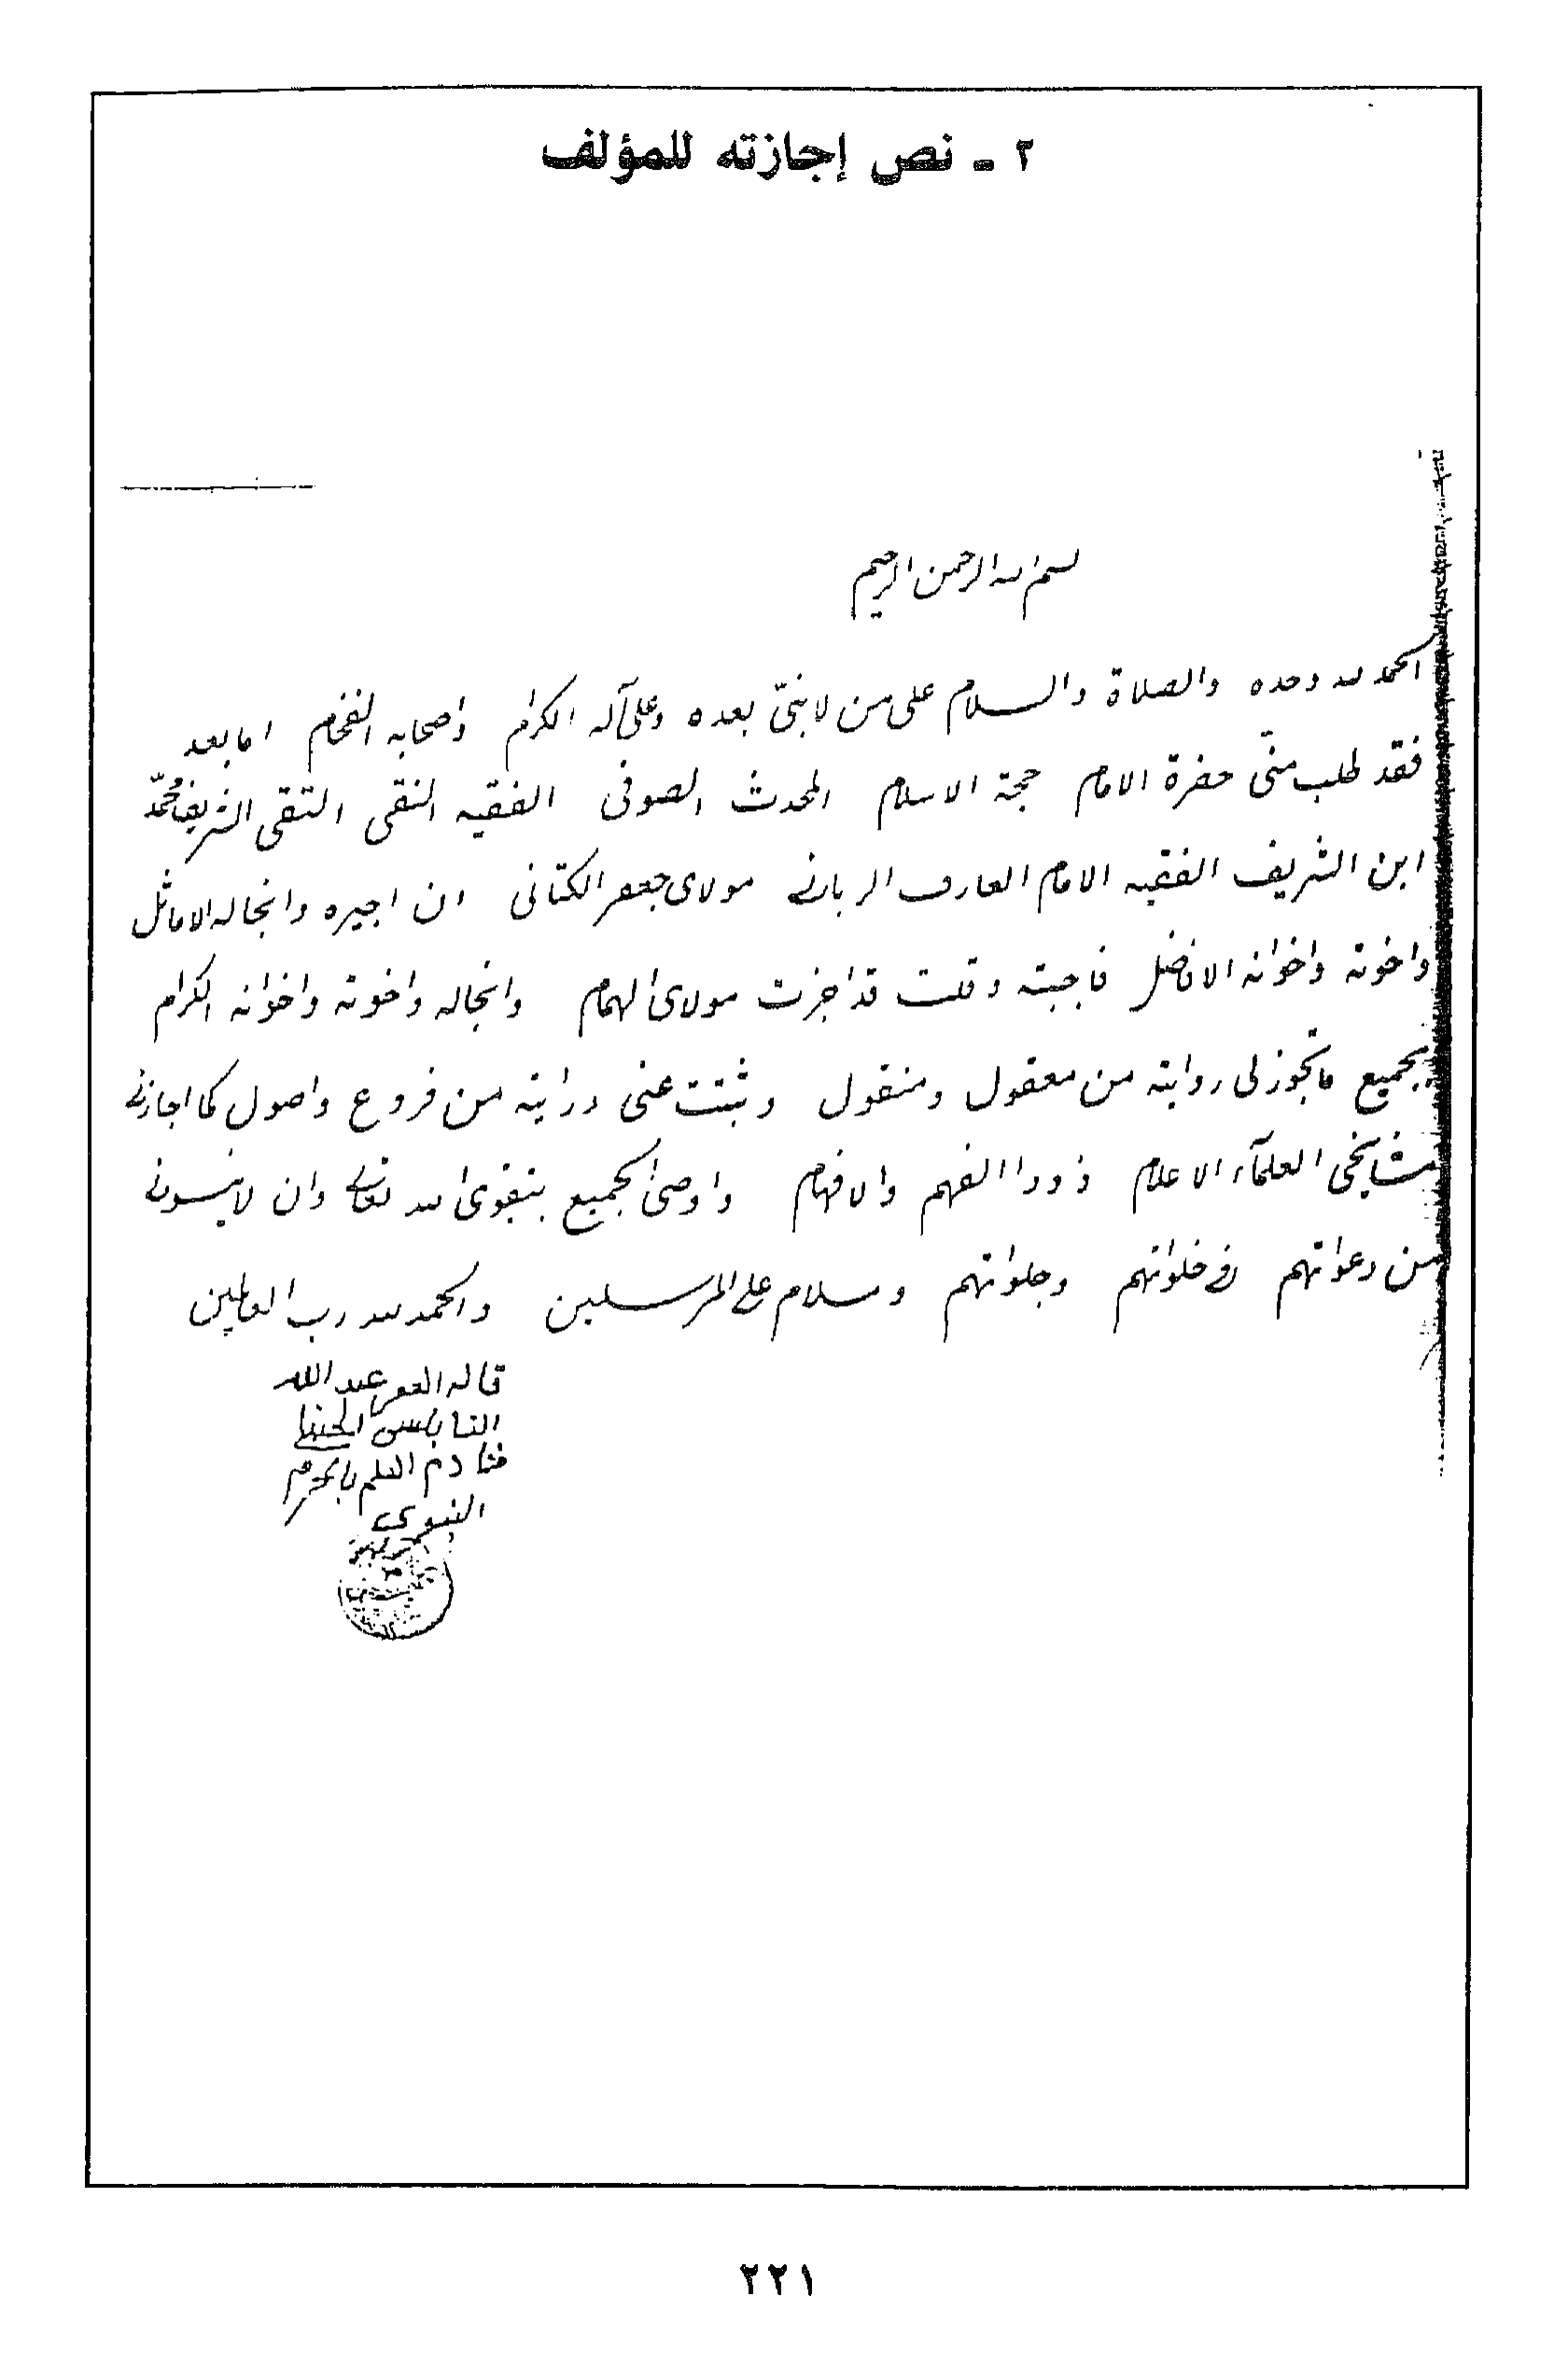 ٢ - نص إجازته للمؤلف
بسم الله الرحمن الرحيم
الحمد لله وحده والصلاة والسلام على من لا نبيّ بعده وعلى آله الكرام واصحابه الفخام اما بعد
فقد طلب منّي حضرة الامام حجة الاسلام المحدث الصوفي الفقيه النقي التقي الشريف محمّد
ابن الشريف الفقيه الامام العارف الرباني مولاى جعفر الكتاني ان اجيره وانجاله الاماثل
واخوته واخوانه الافاضل فاجبته وقلت قد اجزت مولاى الهمام وانجاله واخوته واخوانه الكرام
بجميع ما تجوز لى روايته من معقول ومنقول وثبتت عنى درايته من فروع واصول كما اجازني
مشايخي العلمآء الاعلام ذووا الفهم والافهام واوصى الجميع بتقوى الله تعالى وان لا ينسوني
من دعواتهم في خلواتهم وجلواتهم وسلام على المرسلين والحمد لله رب العالمين
قاله الفقير عبد الله
النابلسي الحنبلي
خادم العلم بالحرم
النبوي
٢٢١